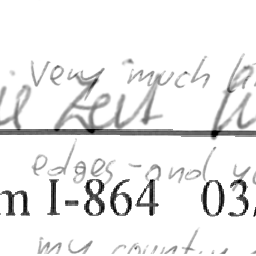 very much
Zeit
edges - and
m I-864 03
my country